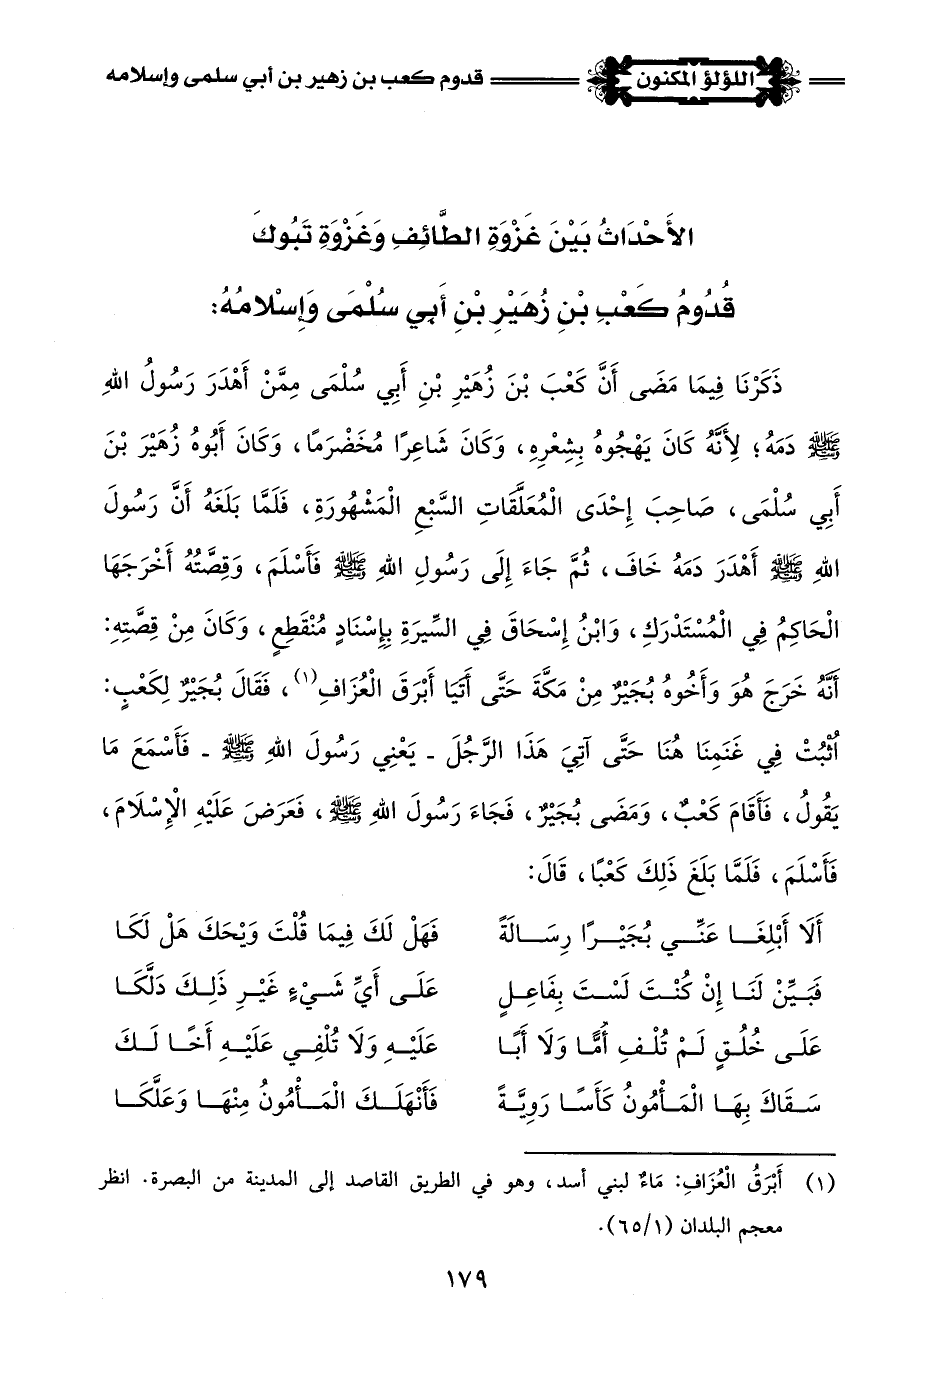 اللؤلؤ المكنون
قدوم كعب بن زهير بن أبي سلمى وإسلامه
الأَحْدَاثُ بَيْنَ غَزْوَةِ الطَّائِفِ وَغَزْوَةِ تَبُوكَ
قُدُومُ كَعْبِ بْنِ زُهَيْرِ بْنِ أَبِي سُلْمَى وَإِسْلامُهُ:
ذَكَرْنَا فِيمَا مَضَى أَنَّ كَعْبَ بْنَ زُهَيْرِ بْنِ أَبِي سُلْمَى مِمَّنْ أَهْدَرَ رَسُولُ اللهِ
ﷺ دَمَهُ؛ لِأَنَّهُ كَانَ يَهْجُوهُ بِشِعْرِهِ، وَكَانَ شَاعِرًا مُخَضْرَمًا، وَكَانَ أَبُوهُ زُهَيْرَ بْنَ
أَبِي سُلْمَى، صَاحِبَ إِحْدَى الْمُعَلَّقَاتِ السَّبْعِ الْمَشْهُورَةِ، فَلَمَّا بَلَغَهُ أَنَّ رَسُولَ
اللهِ ﷺ أَهْدَرَ دَمَهُ خَافَ، ثُمَّ جَاءَ إِلَى رَسُولِ اللهِ ﷺ فَأَسْلَمَ، وَقِصَّتُهُ أَخْرَجَهَا
الْحَاكِمُ فِي الْمُسْتَدْرَكِ، وَابْنُ إِسْحَاقَ فِي السِّيرَةِ بِإِسْنَادٍ مُنْقَطِعٍ، وَكَانَ مِنْ قِصَّتِهِ:
أَنَّهُ خَرَجَ هُوَ وَأَخُوهُ بُجَيْرٌ مِنْ مَكَّةَ حَتَّى أَتَيَا أَبْرَقَ الْعُزَافِ(١)، فَقَالَ بُجَيْرٌ لِكَعْبٍ:
اُثْبُتْ فِي غَنَمِنَا هُنَا حَتَّى آتِيَ هَذَا الرَّجُلَ - يَعْنِي رَسُولَ اللهِ ﷺ - فَأَسْمَعَ مَا
يَقُولُ، فَأَقَامَ كَعْبٌ، وَمَضَى بُجَيْرٌ، فَجَاءَ رَسُولَ اللهِ ﷺ، فَعَرَضَ عَلَيْهِ الْإِسْلَامَ،
فَأَسْلَمَ، فَلَمَّا بَلَغَ ذَلِكَ كَعْبًا، قَالَ:
أَلَا أَبْلِغَا عَنِّي بُجَيْرًا رِسَالَةً فَهَلْ لَكَ فِيمَا قُلْتَ وَيْحَكَ هَلْ لَكَا
فَبَيِّنْ لَنَا إِنْ كُنْتَ لَسْتَ بِفَاعِلٍ عَلَى أَيِّ شَيْءٍ غَيْرِ ذَلِكَ دَلَّكَا
عَلَى خُلُقٍ لَمْ تُلْفِ أُمًّا وَلَا أَبًا عَلَيْهِ وَلَا تُلْفِي عَلَيْهِ أَخًا لَكَ
سَقَاكَ بِهَا الْمَأْمُونُ كَأْسًا رَوِيَّةً فَأَنْهَلَكَ الْمَأْمُونُ مِنْهَا وَعَلَّكَا
(١) أَبْرَقُ الْعُزَافِ: مَاءٌ لبني أسد، وهو في الطريق القاصد إلى المدينة من البصرة. انظر
معجم البلدان (٦٥/١).
١٧٩